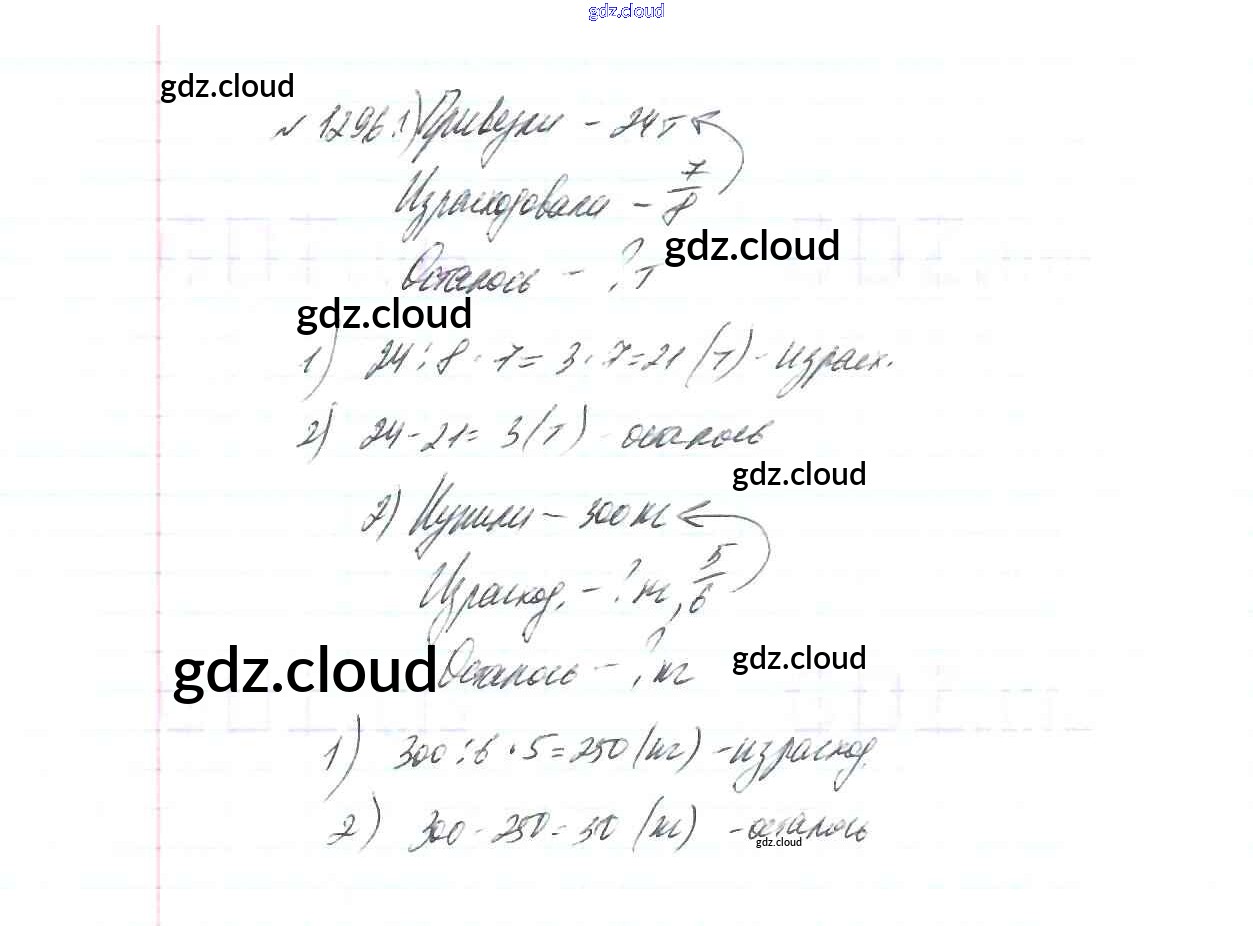 gdz.cloud
gdz.cloud
№ 1296.1) Привезли - 24 т
Израсходовали - 7/8
gdz.cloud
Осталось - ? т
gdz.cloud
1) 24 : 8 · 7 = 3 · 7 = 21 (т) - израсх.
2) 24 - 21 = 3 (т) - осталось
gdz.cloud
2) Купили - 300 кг
Израсход. - ? кг, 5/6
gdz.cloud
Осталось - ? кг
gdz.cloud
1) 300 : 6 · 5 = 250 (кг) - израсход.
2) 300 - 250 = 50 (кг) - осталось
gdz.cloud